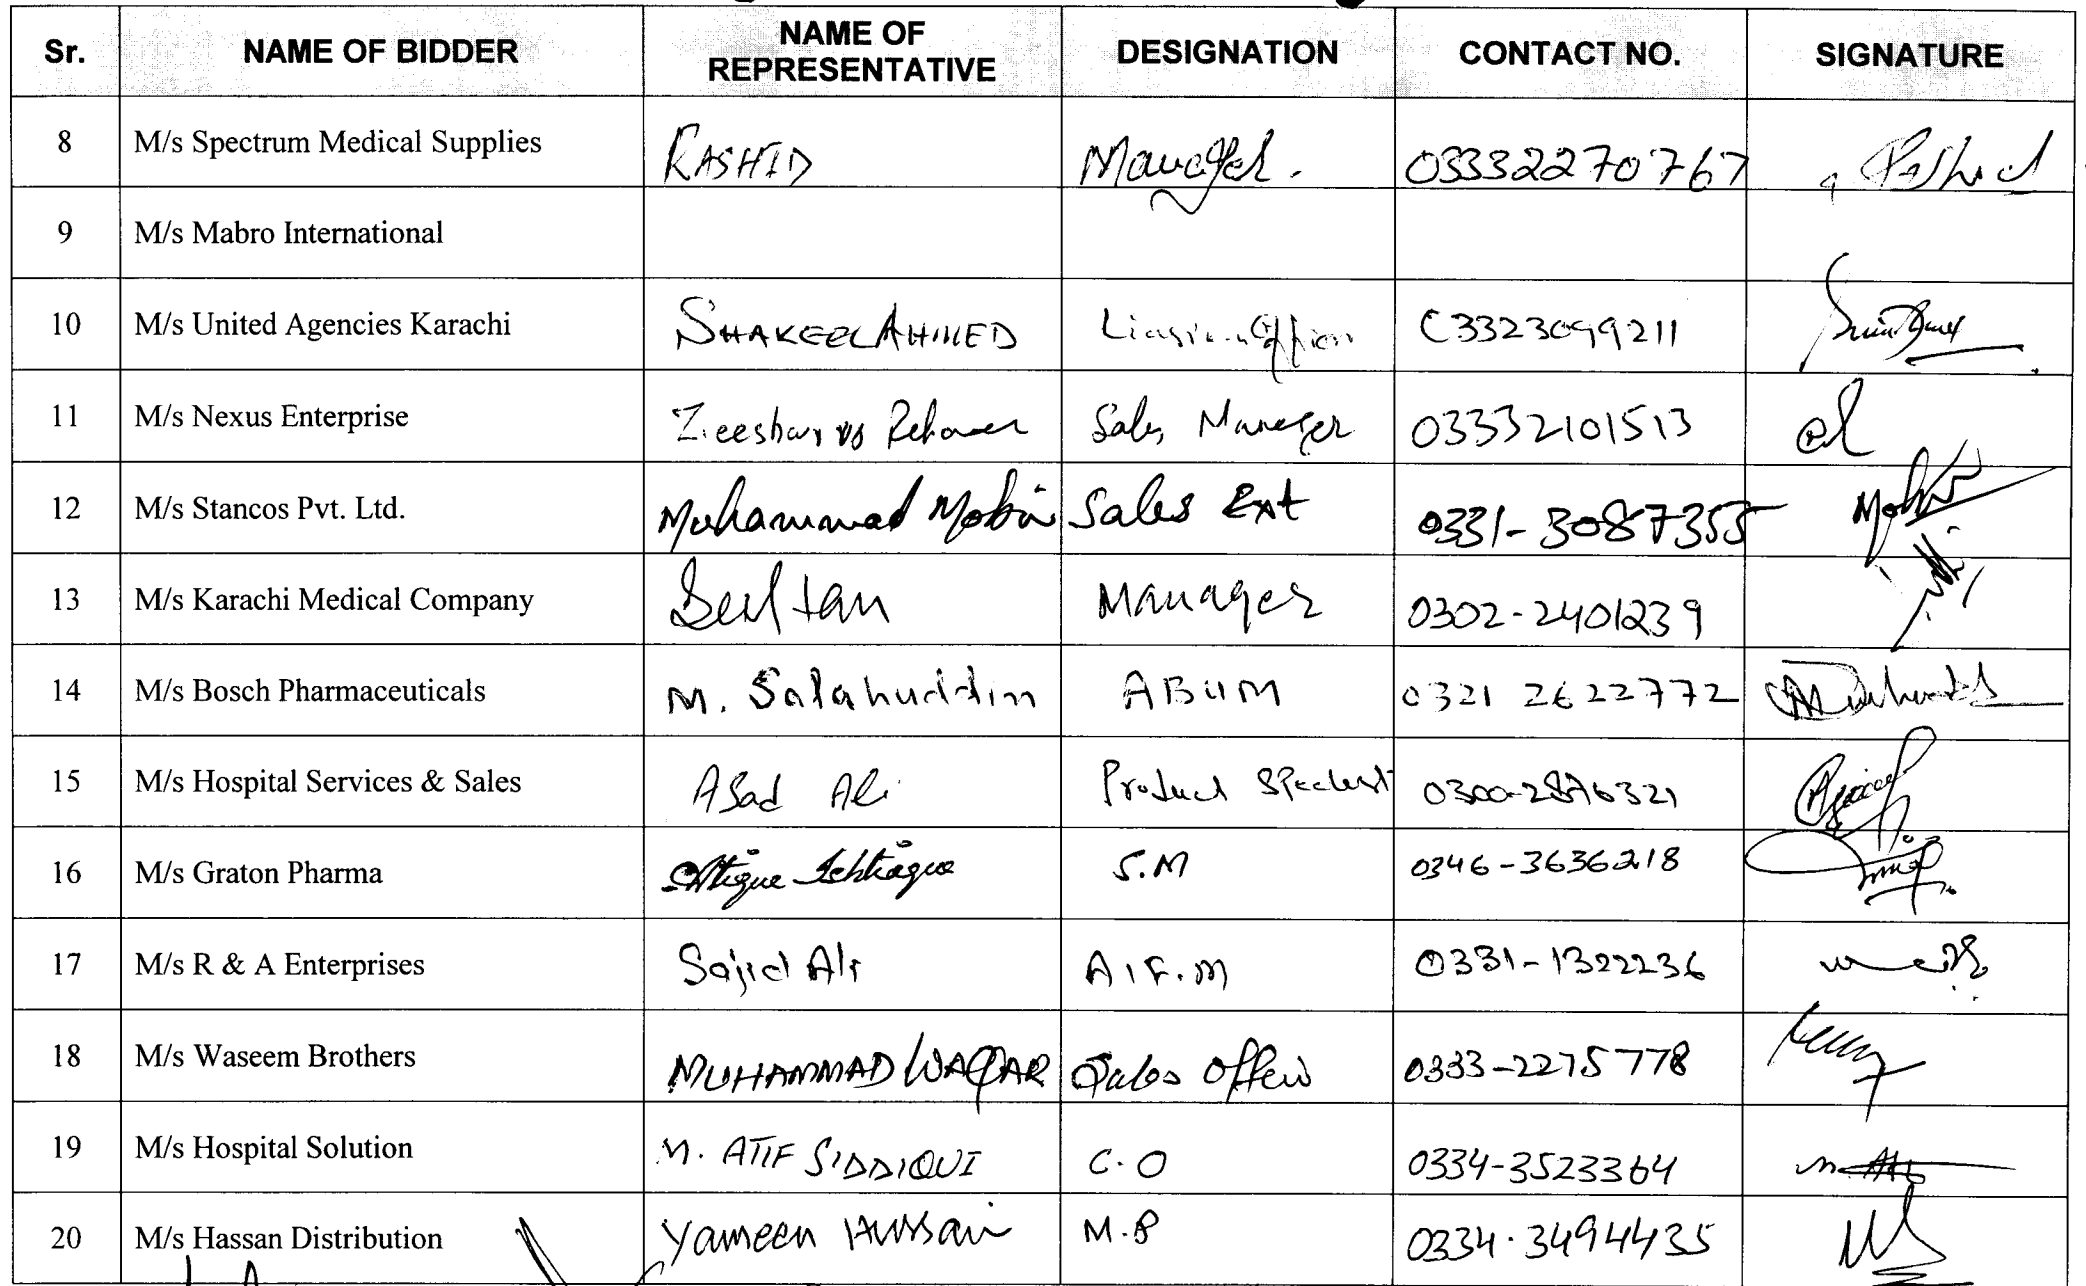 Sr. NAME OF BIDDER NAME OF REPRESENTATIVE DESIGNATION CONTACT NO. SIGNATURE
8 M/s Spectrum Medical Supplies RASHID Manager. 03332270767 Rashid
9 M/s Mabro International
10 M/s United Agencies Karachi SHAKEEL AHMED 03323099211
11 M/s Nexus Enterprise Zeeshan Rehman Sales Manager 03332101513
12 M/s Stancos Pvt. Ltd. Muhammad Mobin Sales Ext 0331-3087355 Mobin
13 M/s Karachi Medical Company Sultan Manager 0302-2401239
14 M/s Bosch Pharmaceuticals M. Salahuddin ABUM 0321 2622772
15 M/s Hospital Services & Sales Asad Ali Product Specialist 0300-2876321
16 M/s Graton Pharma Attique Ishtiaque S.M 0346-3636218
17 M/s R & A Enterprises Sajid Ali 0331-1322236
18 M/s Waseem Brothers MUHAMMAD WAQAR Sales Officer 0333-2275778
19 M/s Hospital Solution M. ATIF SIDDIQUI C.O 0334-3523364
20 M/s Hassan Distribution Yameen Hussain 0334-3494435